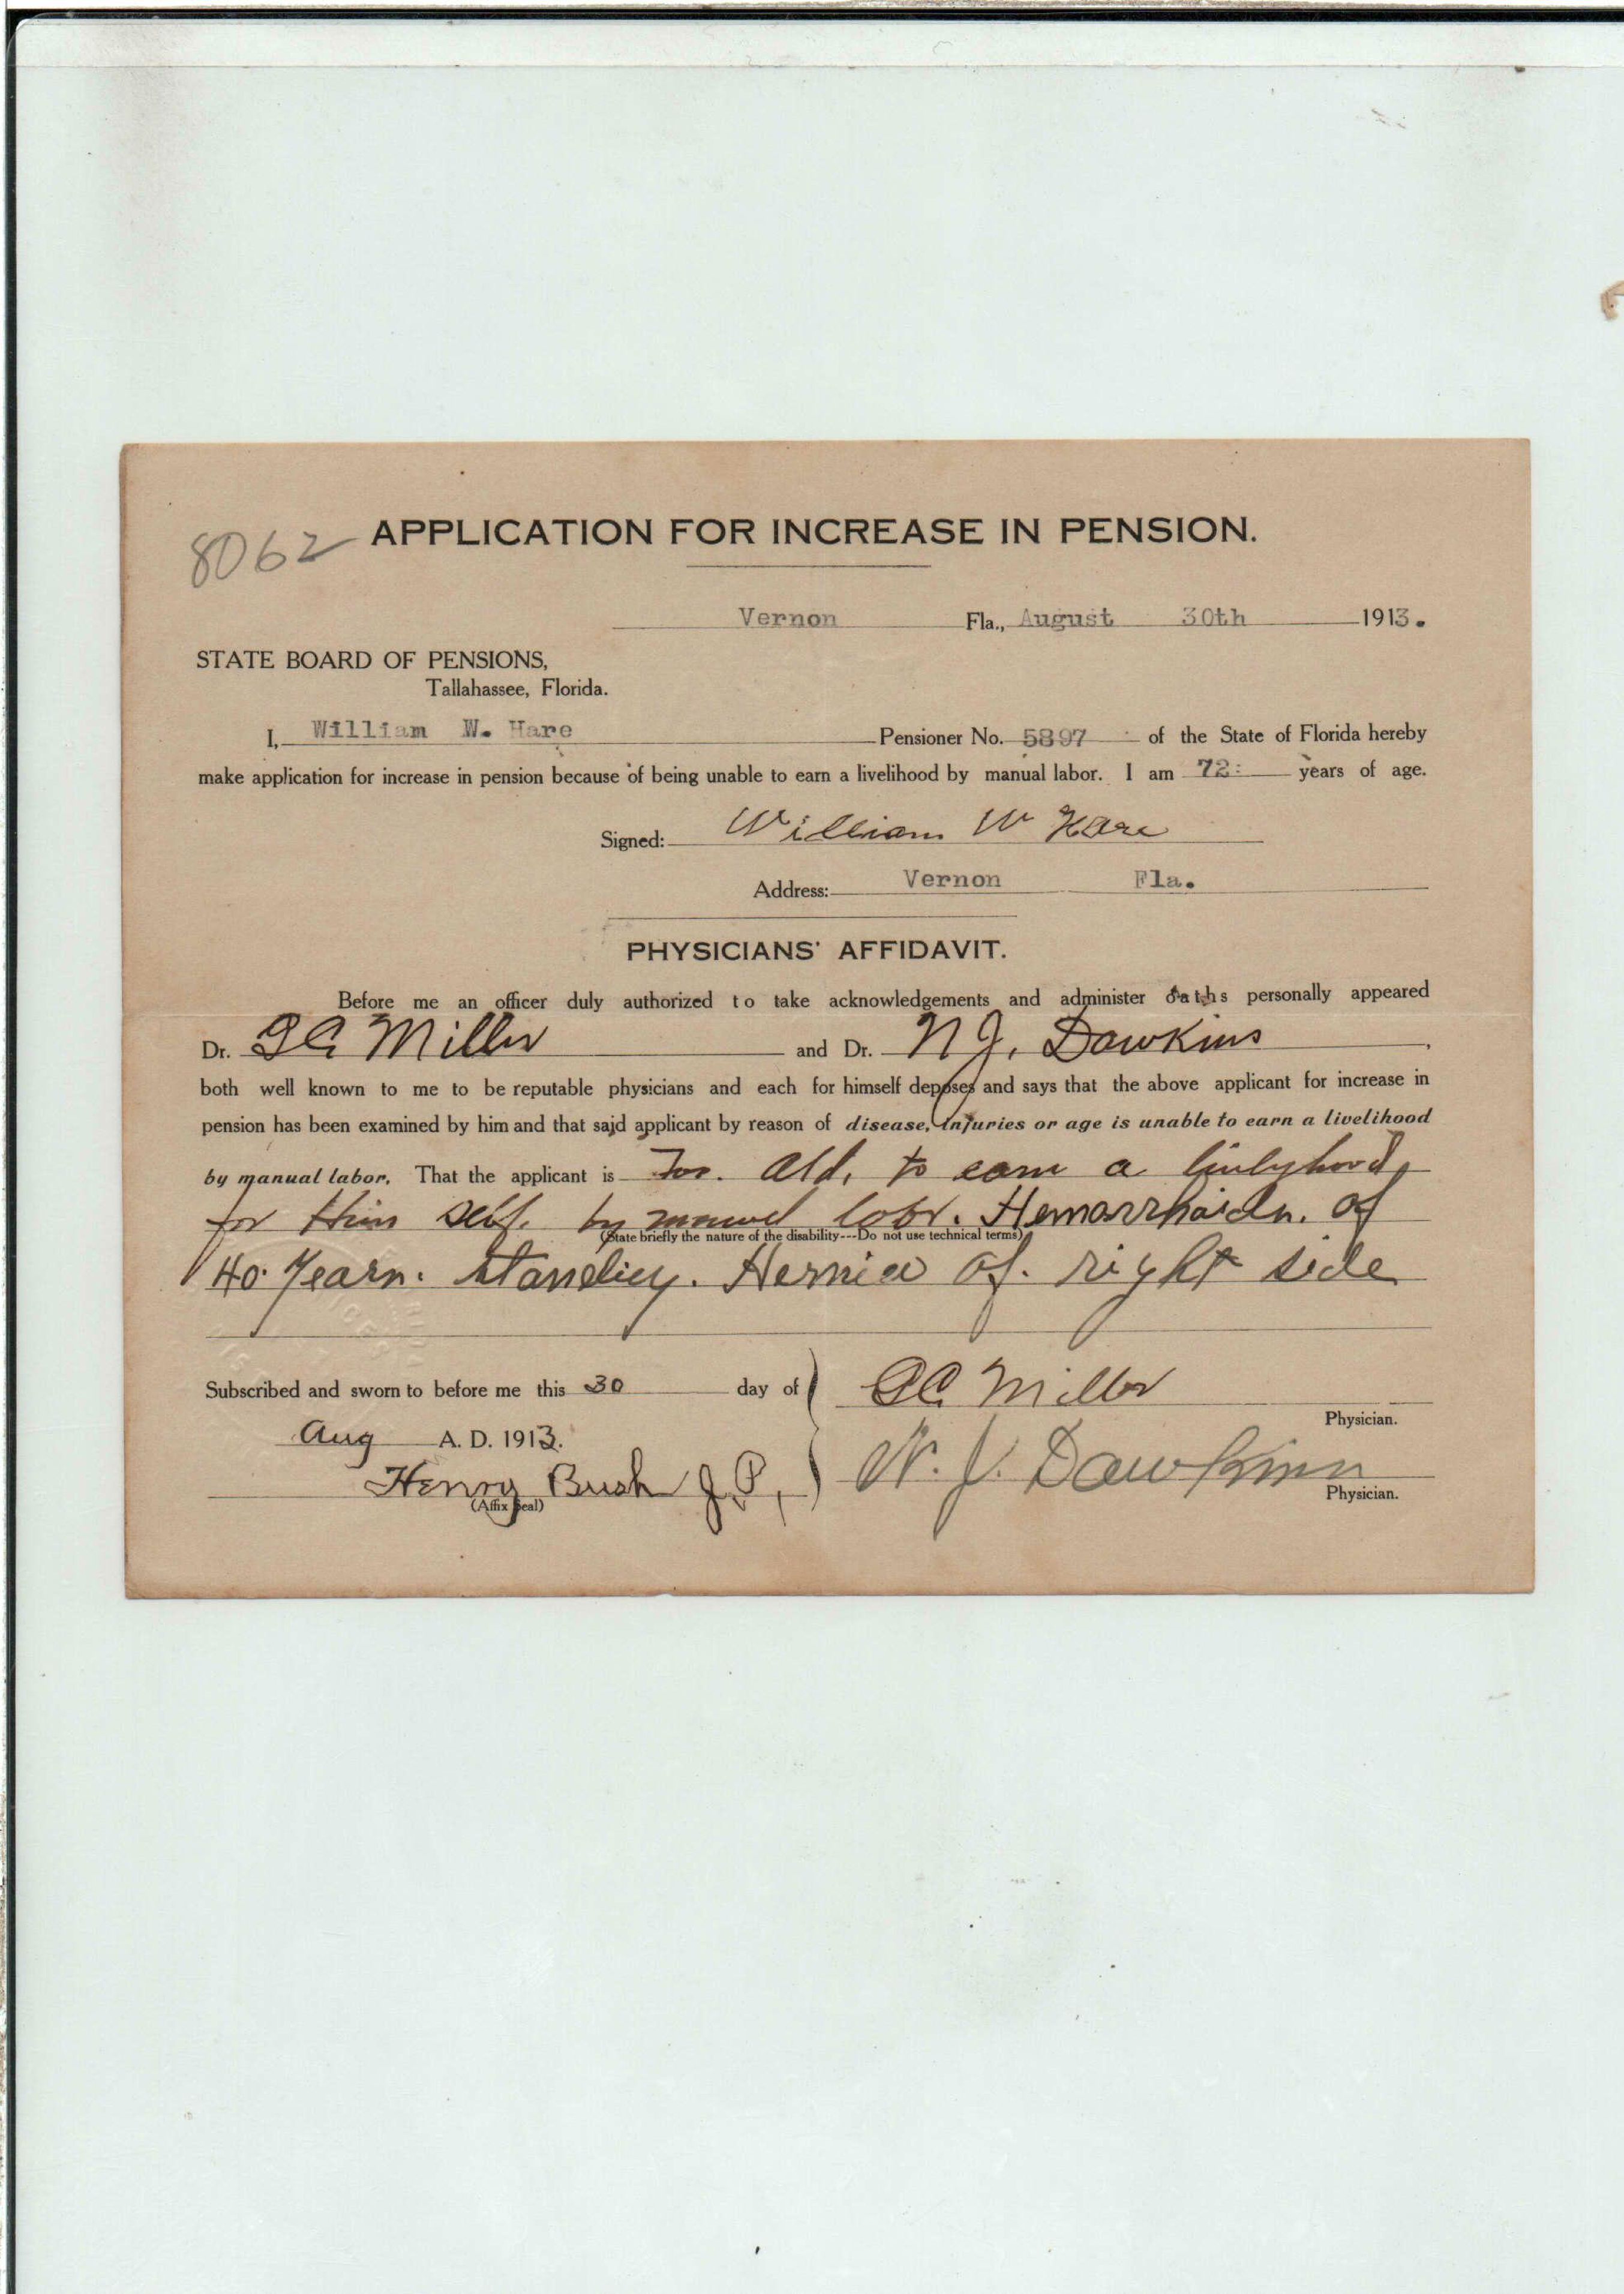 8062 APPLICATION FOR INCREASE IN PENSION.
Vernon Fla., August 30th 1913.
STATE BOARD OF PENSIONS,
Tallahassee, Florida.
I, William W. Hare Pensioner No. 5897 of the State of Florida hereby
make application for increase in pension because of being unable to earn a livelihood by manual labor. I am 72 years of age.
Signed: William W Hare
Address: Vernon Fla.
PHYSICIANS' AFFIDAVIT.
Before me an officer duly authorized to take acknowledgements and administer oaths personally appeared
Dr. Miller and Dr. N J. Dawkins,
both well known to me to be reputable physicians and each for himself deposes and says that the above applicant for increase in
pension has been examined by him and that said applicant by reason of disease, injuries or age is unable to earn a livelihood
by manual labor. That the applicant is Too. Old. to earn a
for Him self. by labr. Hemorrhoids. of
(State briefly the nature of the disability---Do not use technical terms)
40. Years. standing. Hernia of. right side
Subscribed and sworn to before me this 30 day of Miller
Physician.
Aug A. D. 1913.
Henry Bush J.P. N. J. Dawkins
(Affix Seal) Physician.